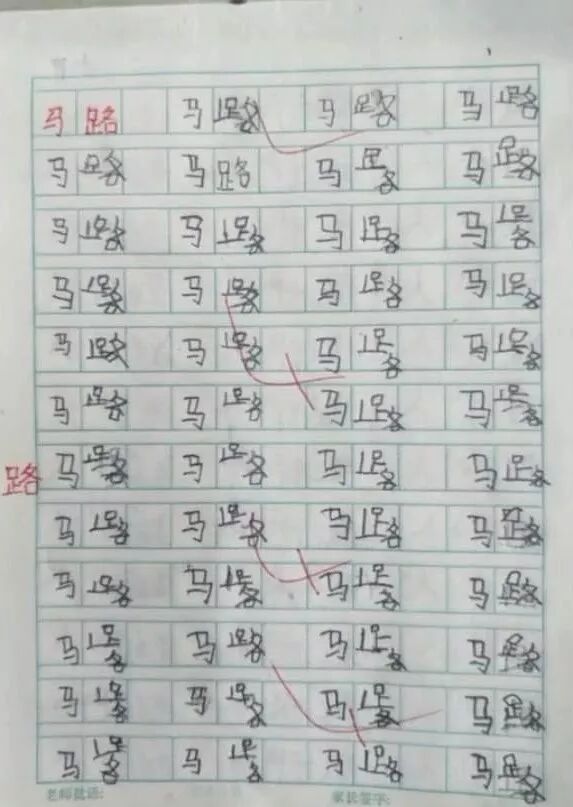 马 路 马 路 马 路 马 路
马 路 马 路 马 路 马 路
马 路 马 路 马 路 马 路
马 路 马 路 马 路 马 路
马 路 马 路 马 路 马 路
马 路 马 路 马 路 马 路
路 马 路 马 路 马 路 马 路
马 路 马 路 马 路 马 路
马 路 马 路 马 路 马 路
马 路 马 路 马 路 马 路
马 路 马 路 马 路 马 路
马 路 马 路 马 路 马 路
老师批语: 家长签字: